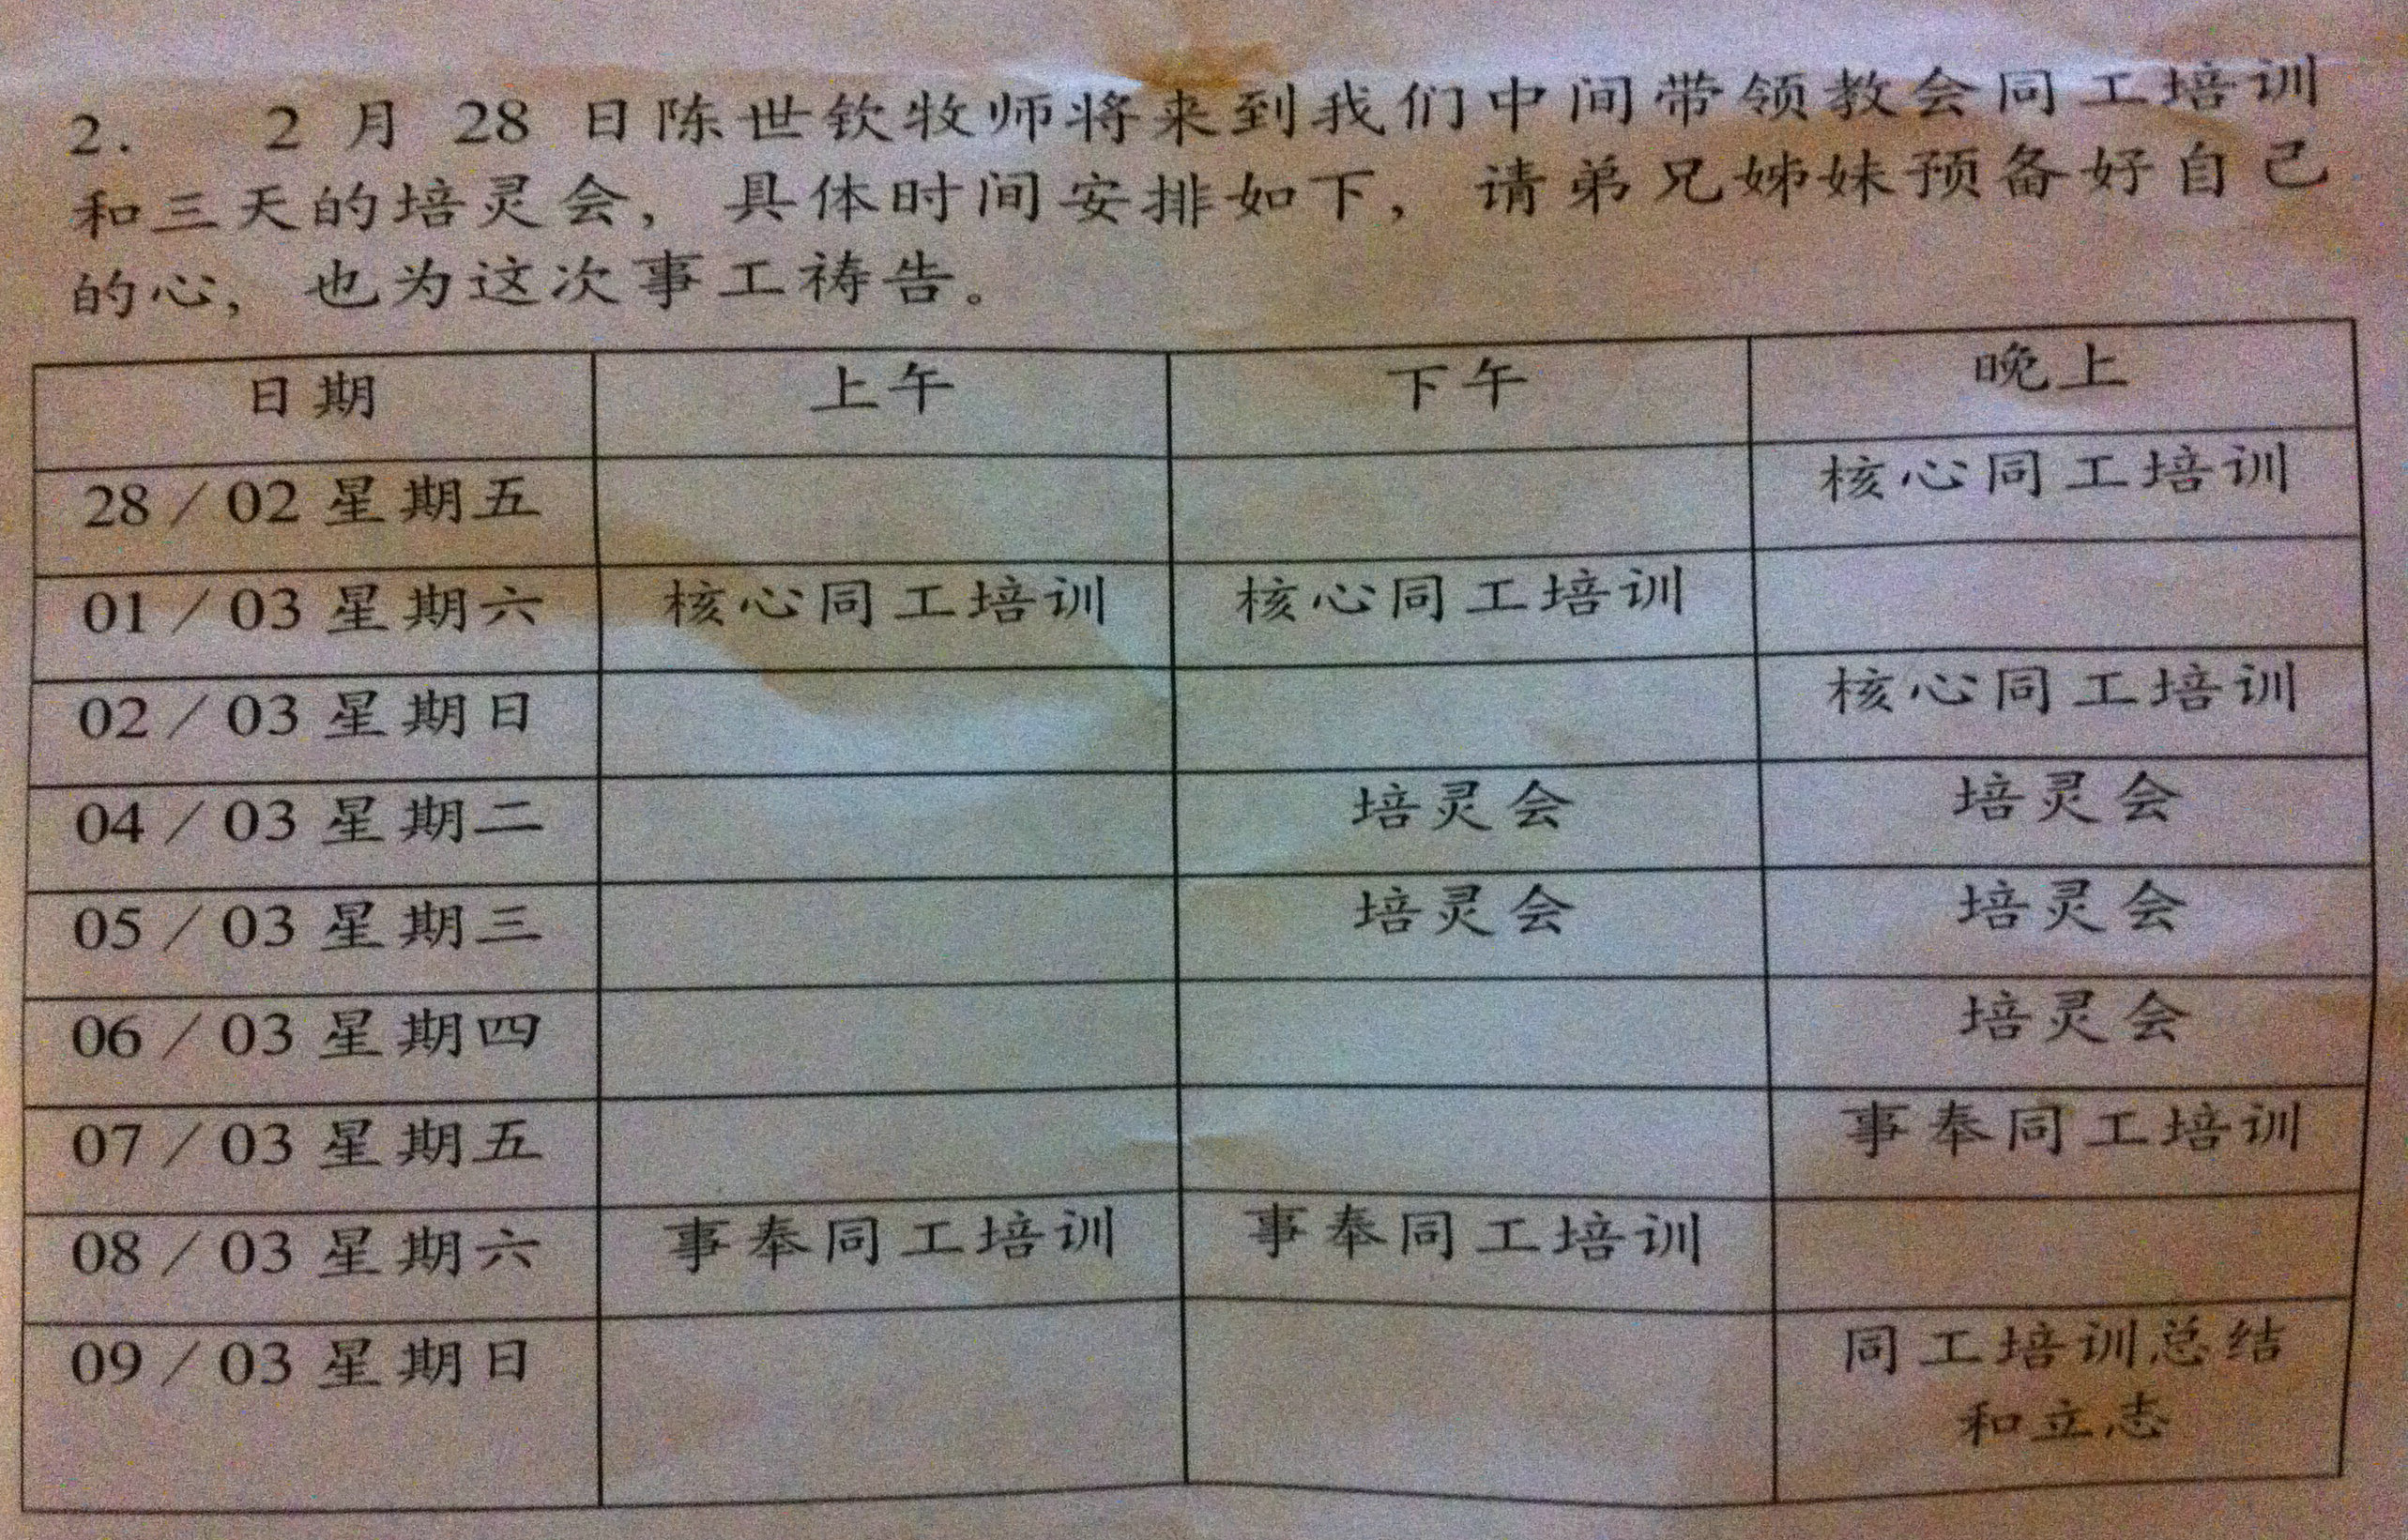 2. 2 月 28 日陈世钦牧师将来到我们中间带领教会同工培训
和三天的培灵会，具体时间安排如下，请弟兄姊妹预备好自己
的心，也为这次事工祷告。
日期 上午 下午 晚上
28／02 星期五 核心同工培训
01／03 星期六 核心同工培训 核心同工培训
02／03 星期日 核心同工培训
04／03 星期二 培灵会 培灵会
05／03 星期三 培灵会 培灵会
06／03 星期四 培灵会
07／03 星期五 事奉同工培训
08／03 星期六 事奉同工培训 事奉同工培训
09／03 星期日 同工培训总结
和立志